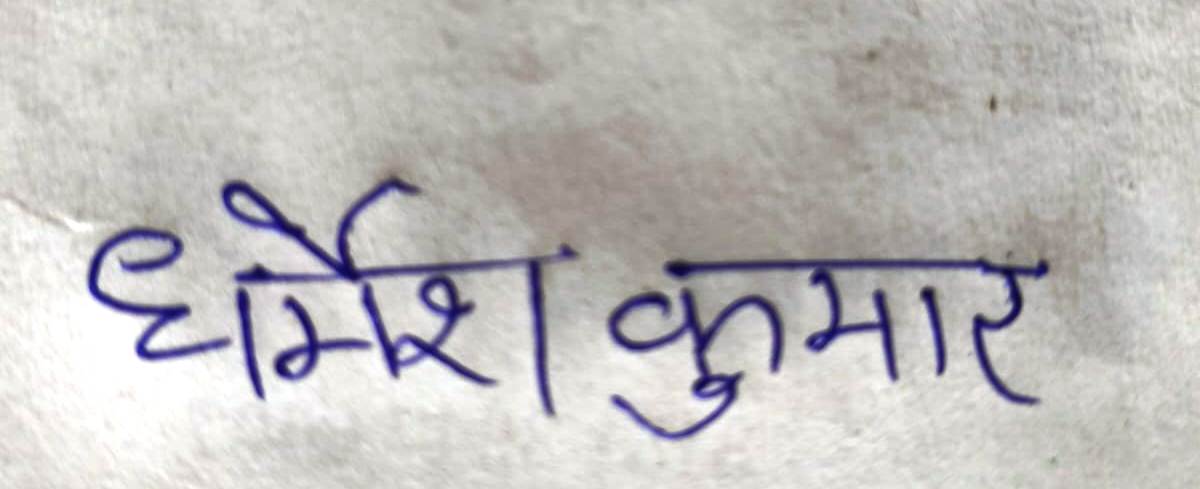 धर्मेश कुमार